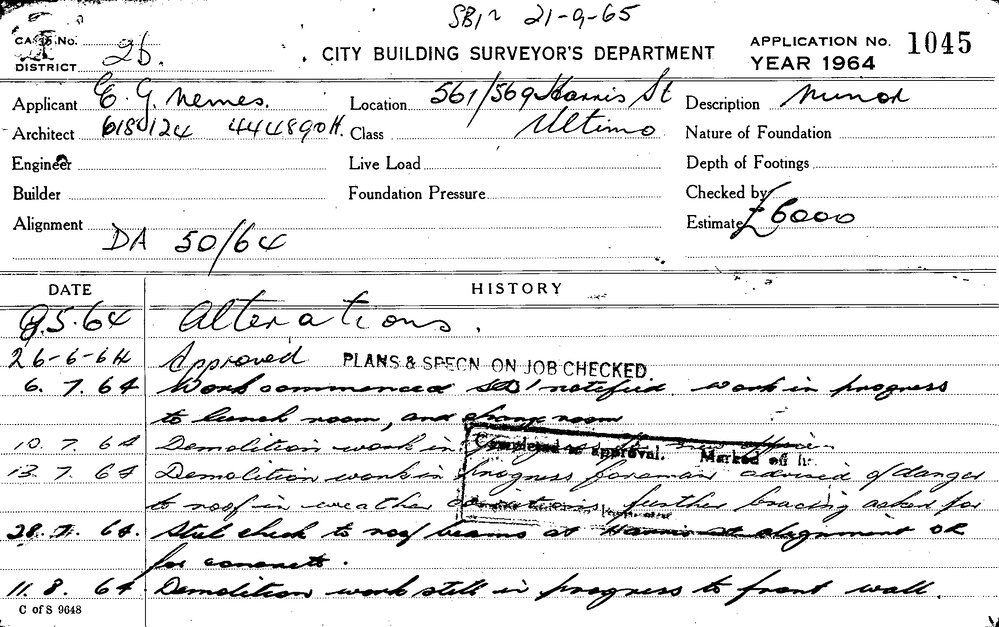 SB1 21-9-65
CARD No.
DISTRICT 2b.
CITY BUILDING SURVEYOR'S DEPARTMENT
APPLICATION No. 1045
YEAR 1964
Applicant E. G. Nemes. Location 561/569 Harris St Description Minor
Architect Class Ultimo Nature of Foundation
Engineer Live Load Depth of Footings
Builder Foundation Pressure Checked by
Alignment DA 50/64 Estimate £6000
DATE HISTORY
8.5.64 Alterations.
26-6-64 Approved PLANS & SPECN ON JOB CHECKED
6. 7. 64 Work commenced SB1 notified. work in progress
to lunch room, and change room
10. 7. 64 Demolition work in
13. 7. 64 Demolition work in progress foreman advised of danger
to roof in weather conditions further bracing asked for
Completed to approval. Marked off
28. 7. 64. Steel check to roof beams at Harris St alignment OK
for concrete.
11. 8. 64 Demolition work still in progress to front wall.
C of S 9648